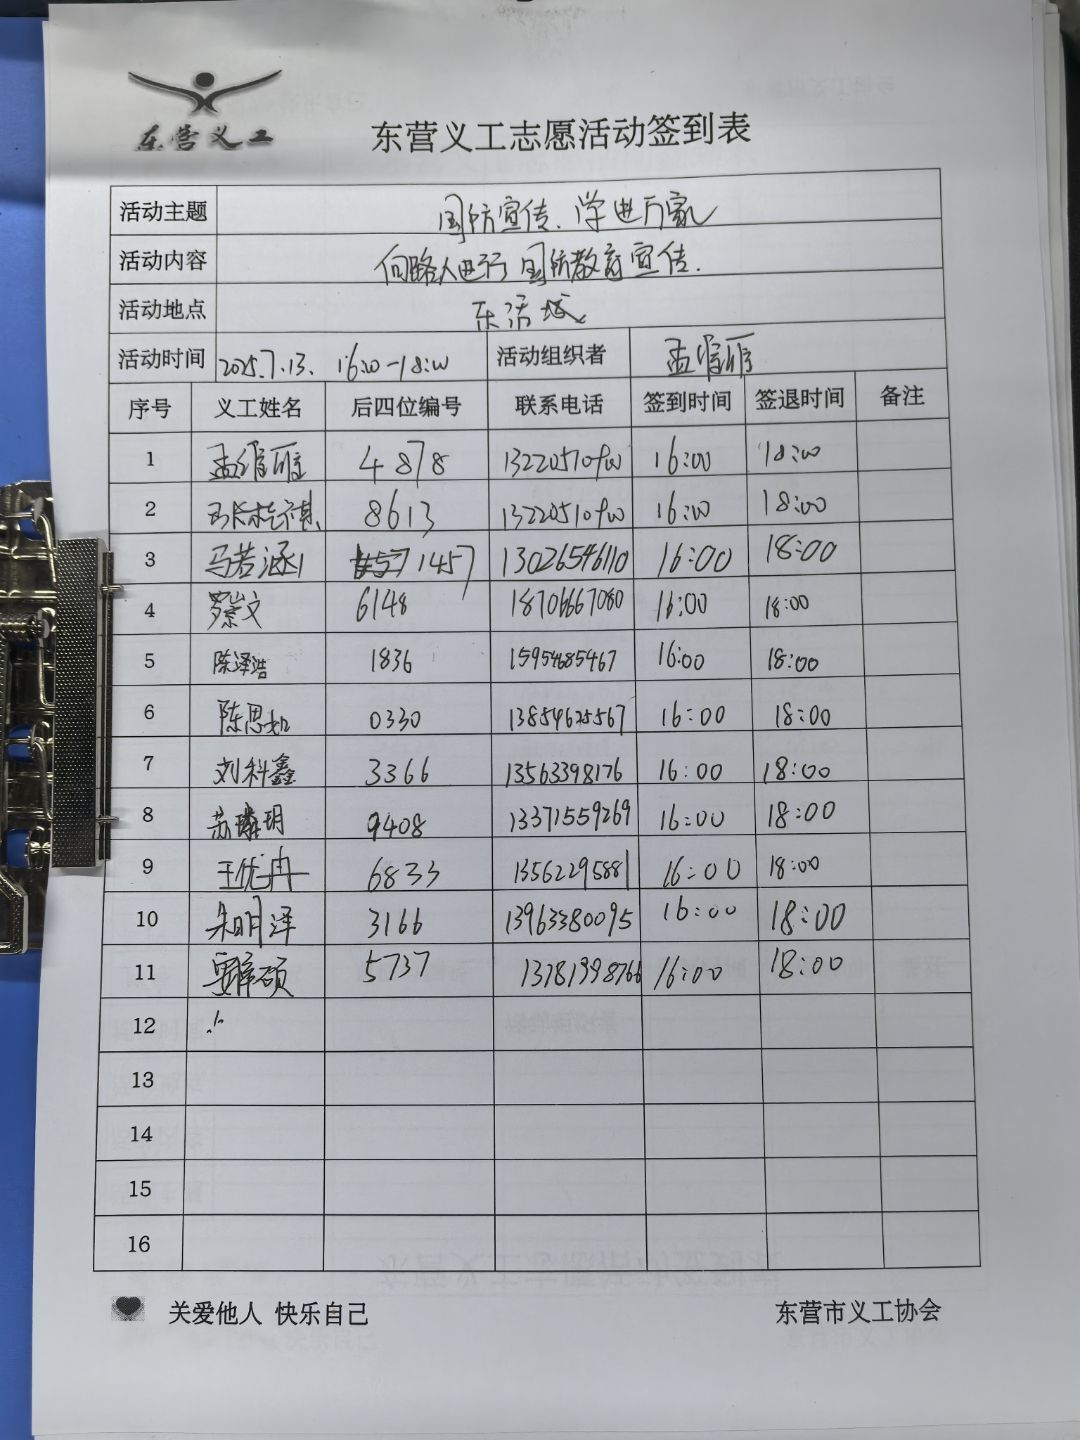 东营义工
东营义工志愿活动签到表
活动主题 国防宣传、学进万家
活动内容 向路人进行国防教育宣传.
活动地点 东活城
活动时间 2025.7.13. 16:00-18:00 活动组织者
序号 义工姓名 后四位编号 联系电话 签到时间 签退时间 备注
1 4878 16:00 18:00
2 8613 16:00 18:00
3 马若涵 1457 13026546110 16:00 18:00
4 罗崇文 6148 18706667080 16:00 18:00
5 陈泽浩 1836 15954685467 16:00 18:00
6 陈思如 0330 13854625567 16:00 18:00
7 刘科鑫 3366 13563398176 16:00 18:00
8 苏璐玥 9408 13371559269 16:00 18:00
9 王优冉 6833 13562295881 16:00 18:00
10 朱明泽 3166 13963380095 16:00 18:00
11 5737 16:00 18:00
12
13
14
15
16
关爱他人 快乐自己 东营市义工协会